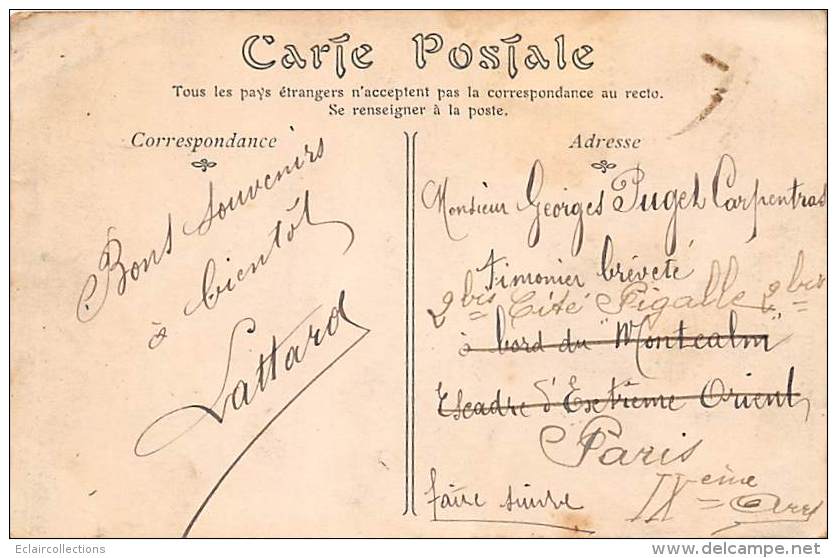 Carte Postale
Tous les pays étrangers n'acceptent pas la correspondance au recto.
Se renseigner à la poste.
Correspondance
Bons souvenirs
à bientôt
Lattard
Adresse
Monsieur Georges Puget Carpentras
Timonier brèveté
2 bis Cité Pigalle 2 bis
à bord du "Montcalm"
Escadre d'Extrême Orient
Paris
faire suivre IX ème Arrt
Eclaircollections
www.delcampe.net